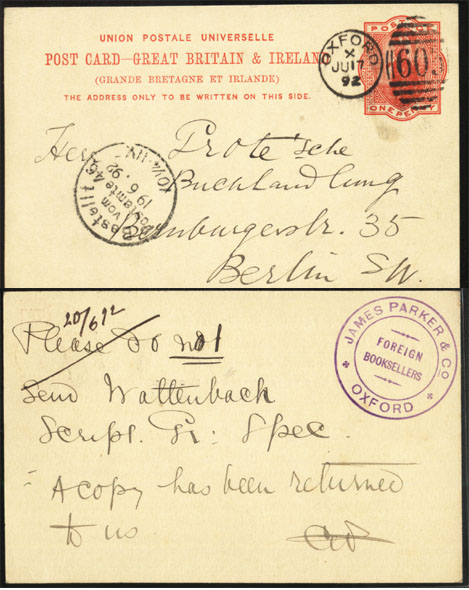 UNION POSTALE UNIVERSELLE
POST CARD—GREAT BRITAIN & IRELAND
(GRANDE BRETAGNE ET IRLANDE)
THE ADDRESS ONLY TO BE WRITTEN ON THIS SIDE.
OXFORD
X
JU 17
92
603
POSTAGE
ONE PENNY
Bestellt
vom
Postamte 46
19 6 92
Prote'sche
Buchhandlung
Bernburgerstr. 35
Berlin SW.
20/6 92
Please do not
Send Wattenbach
Script. Gr: Spec.
A copy has been returned
to us
JAMES PARKER & CO
FOREIGN
BOOKSELLERS
OXFORD